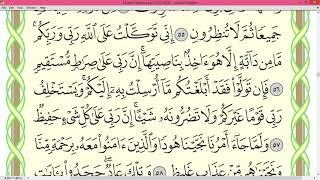 جَمِيعًا ثُمَّ لَا تُنظِرُونِ ٥٥ إِنِّي تَوَكَّلْتُ عَلَى ٱللَّهِ رَبِّي وَرَبِّكُم
مَّا مِن دَآبَّةٍ إِلَّا هُوَ ءَاخِذٌۢ بِنَاصِيَتِهَآ إِنَّ رَبِّي عَلَىٰ صِرَٰطٍ مُّسْتَقِيمٍ
٥٦ فَإِن تَوَلَّوْا۟ فَقَدْ أَبْلَغْتُكُم مَّآ أُرْسِلْتُ بِهِۦٓ إِلَيْكُمْ وَيَسْتَخْلِفُ
رَبِّي قَوْمًا غَيْرَكُمْ وَلَا تَضُرُّونَهُۥ شَيْـًٔا إِنَّ رَبِّي عَلَىٰ كُلِّ شَيْءٍ حَفِيظٌ
٥٧ وَلَمَّا جَآءَ أَمْرُنَا نَجَّيْنَا هُودًا وَٱلَّذِينَ ءَامَنُوا۟ مَعَهُۥ بِرَحْمَةٍ مِّنَّا
وَنَجَّيْنَٰهُم مِّنْ عَذَابٍ غَلِيظٍ ٥٨ وَتِلْكَ عَادٌ جَحَدُوا۟ بِـَٔايَٰتِ